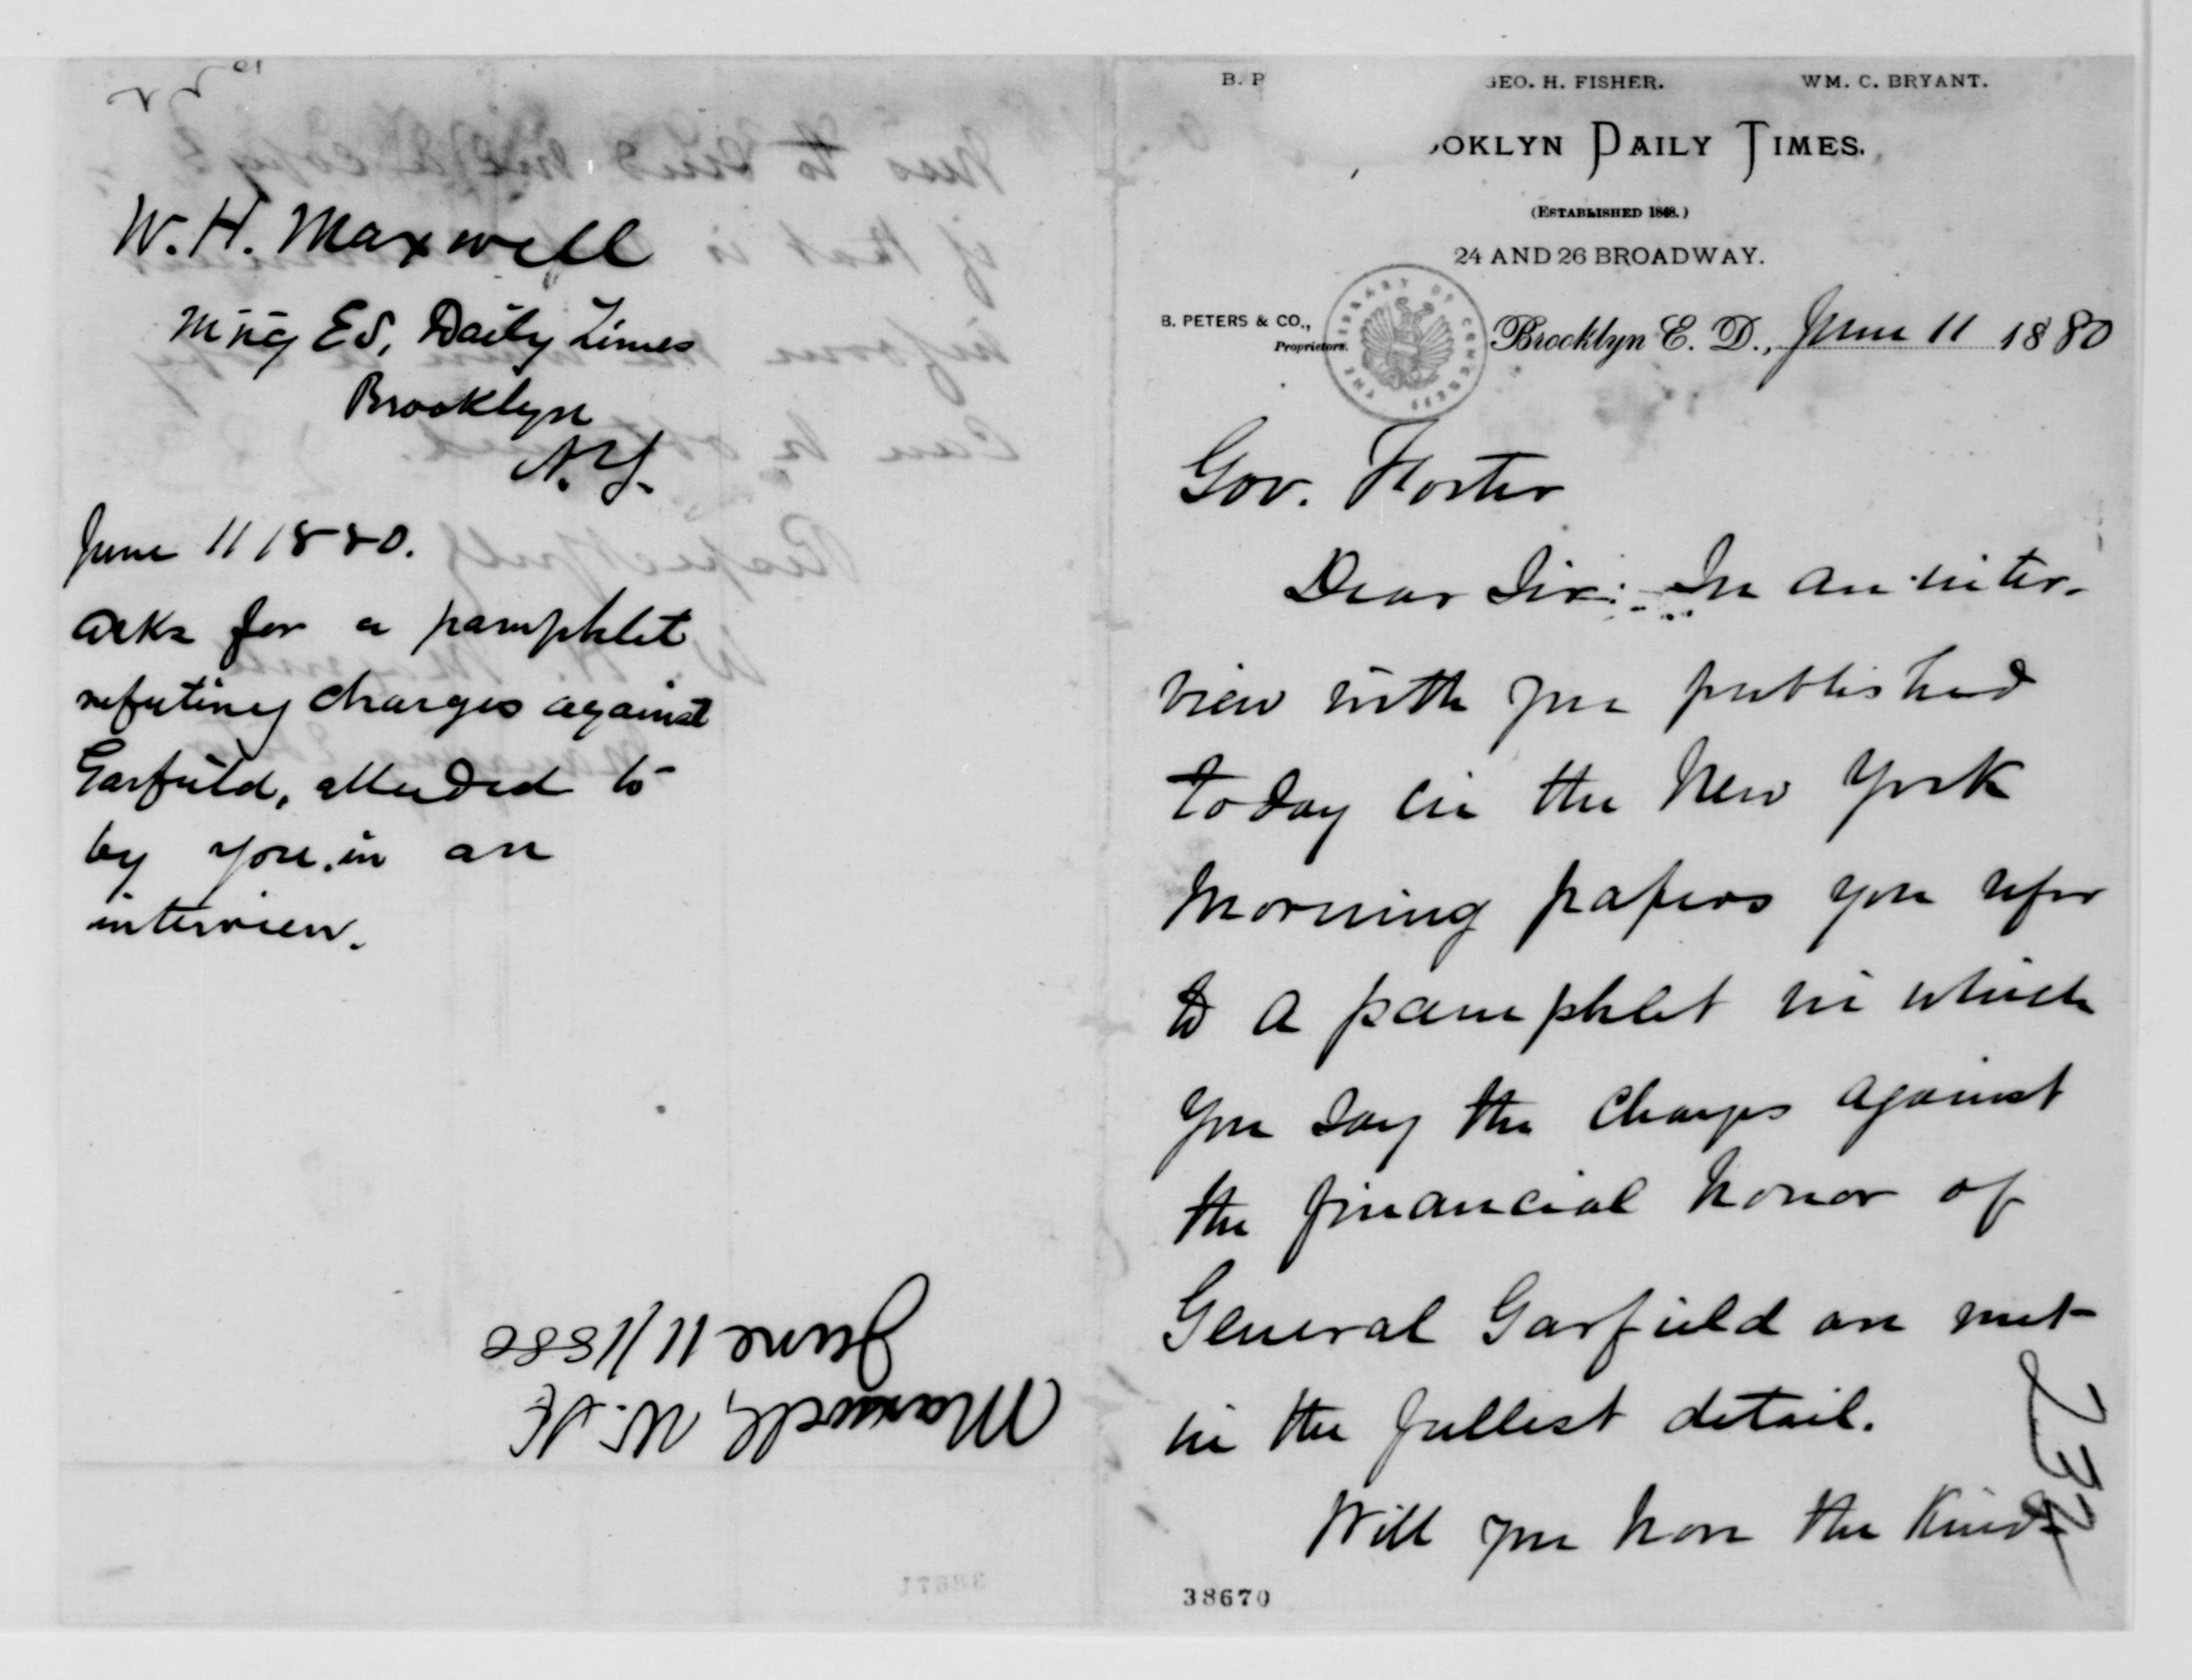 W. H. Maxwell
M'n'g Ed. Daily Times
Brooklyn
N.Y.
June 11 1880.
asks for a pamphlet
refuting charges against
Garfield, alluded to
by you in an
interview.
Maxwell, W. H.
June 11/1880
B. P
GEO. H. FISHER.
WM. C. BRYANT.
OKLYN DAILY TIMES.
(ESTABLISHED 1848.)
24 AND 26 BROADWAY.
B. PETERS & CO.,
Proprietors.
THE LIBRARY OF CONGRESS
Brooklyn E. D., June 11 1880
Gov. Foster
Dear Sir: In an inter-
view with you published
today in the New York
morning papers you refer
to a pamphlet in which
you say the charges against
the financial honor of
General Garfield are met
in the fullest detail.
Will you have the kind-
38670
38671